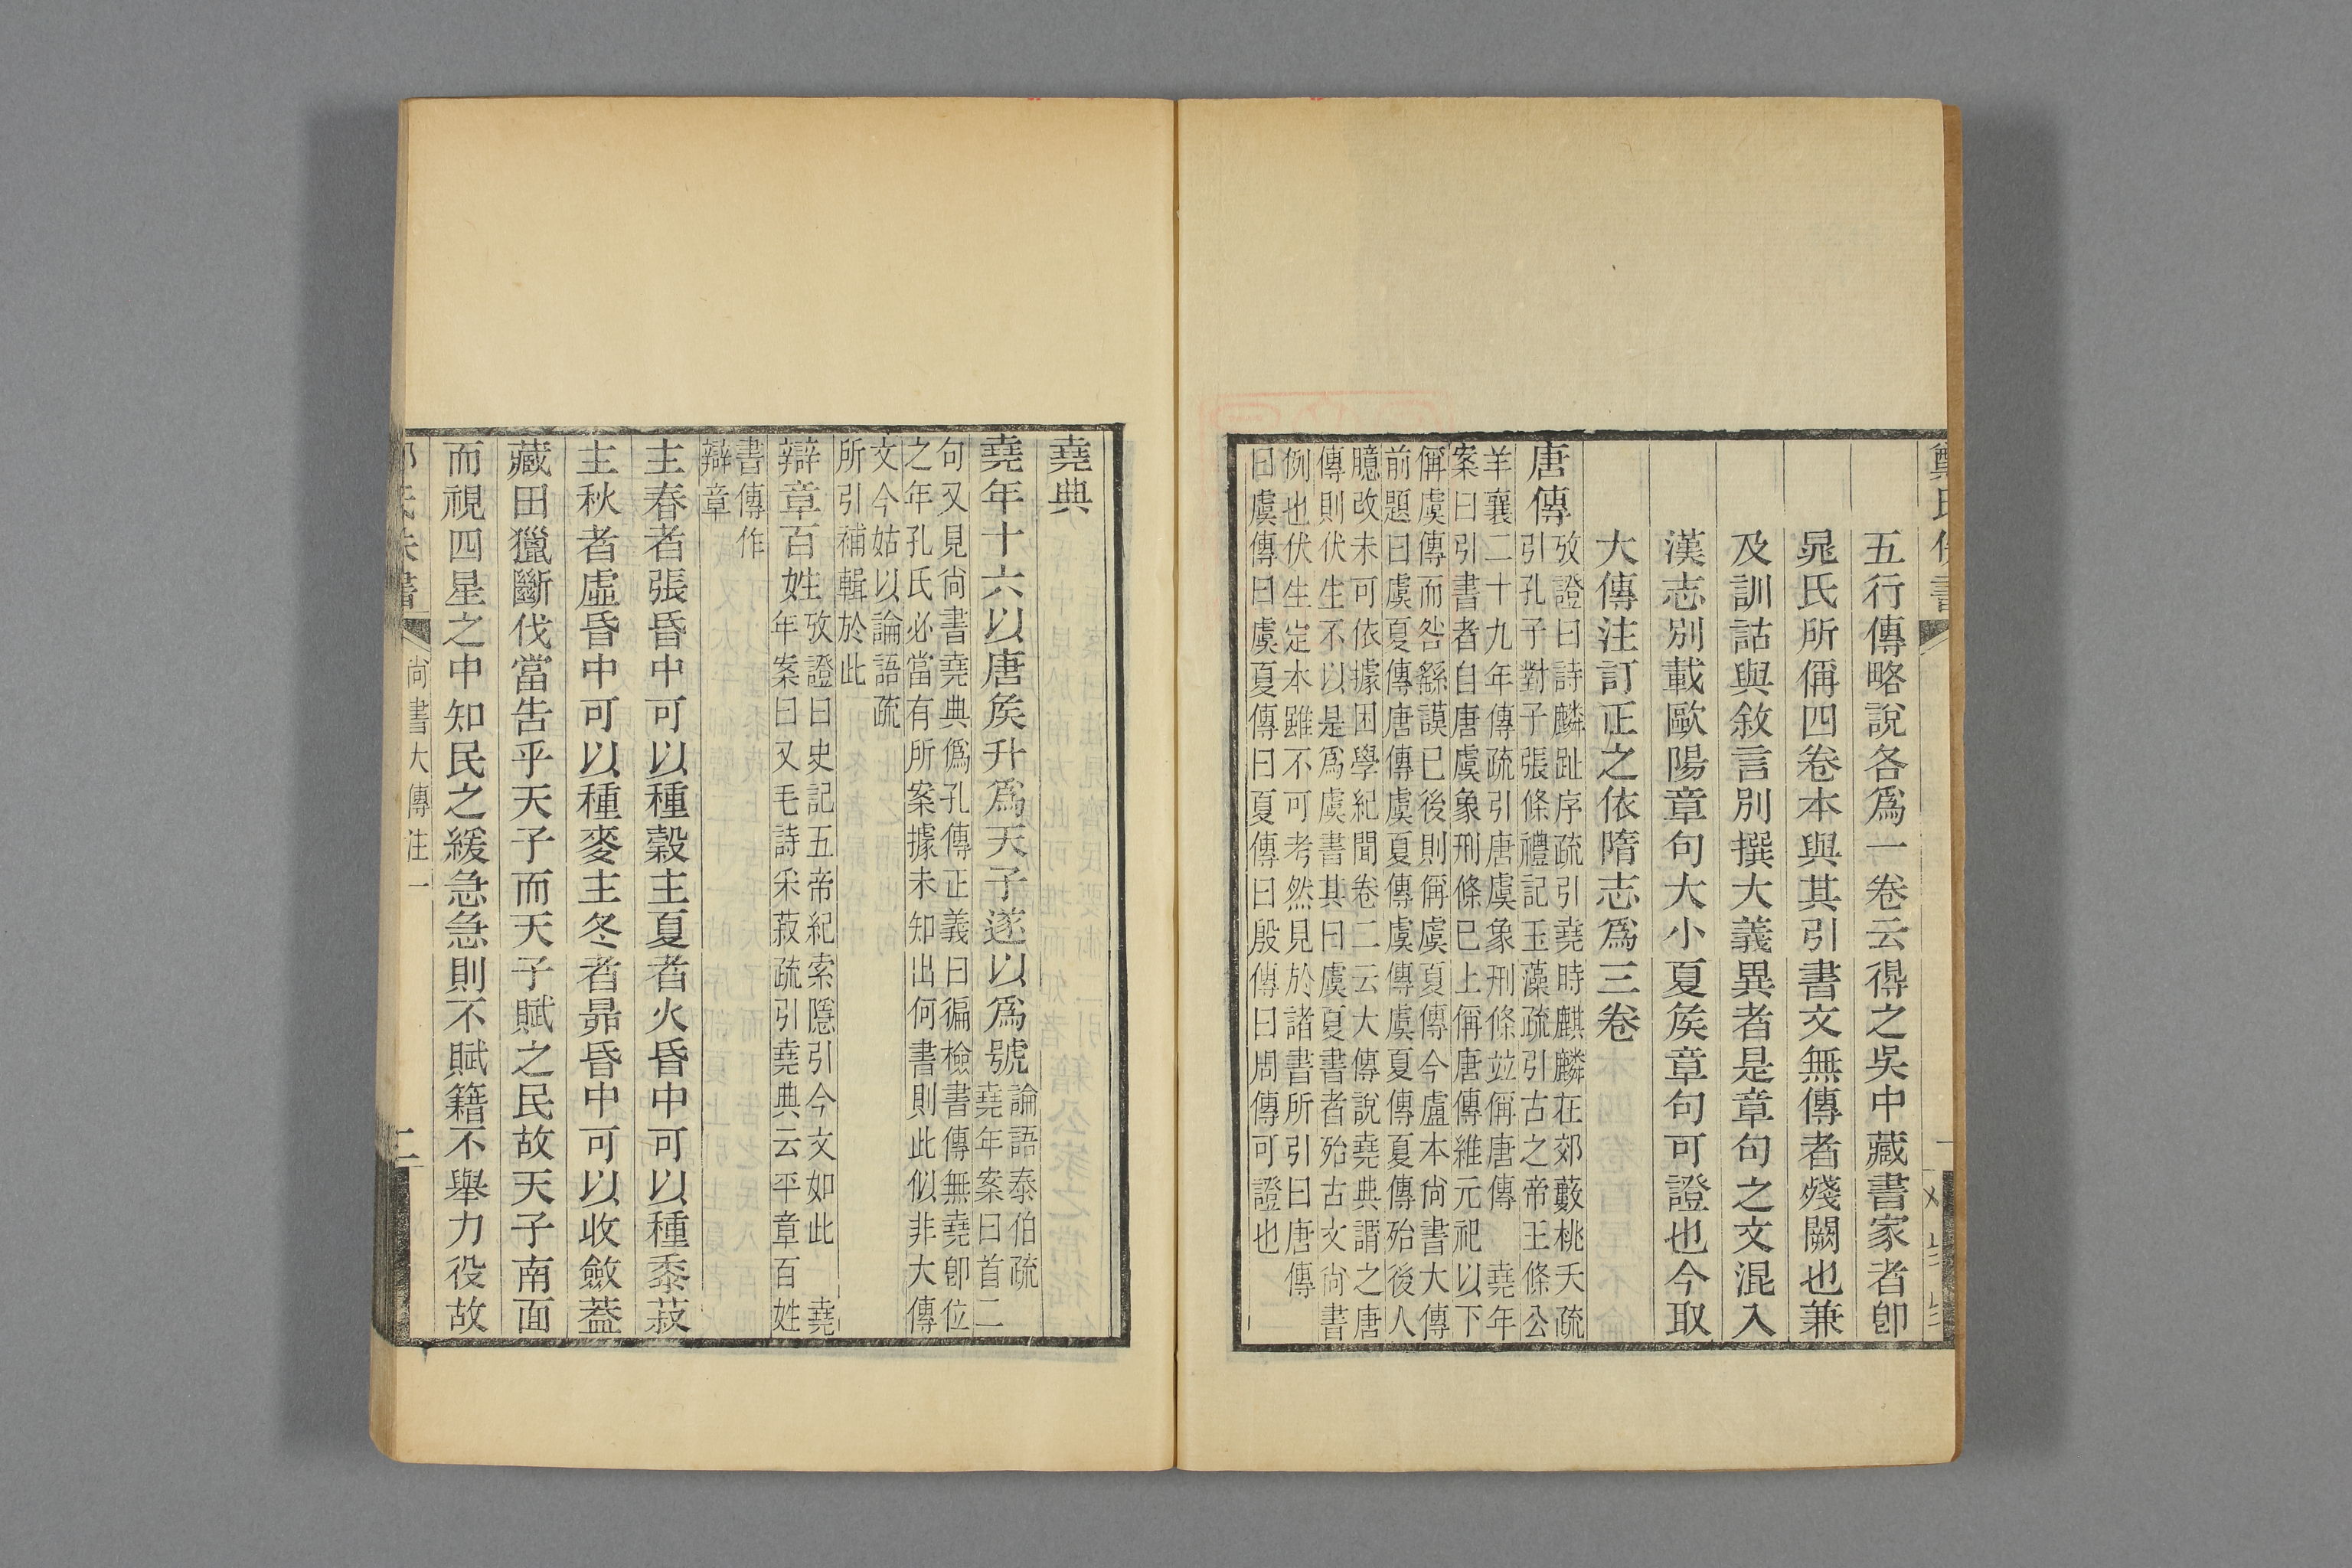 五行傳略說各爲一卷云得之吳中藏書家者卽
晁氏所偁四卷本與其引書文無傳者殘闕也兼
及訓詁與敘言別撰大義異者是章句之文混入
漢志別載歐陽章句大小夏矦章句可證也今取
大傳注訂正之依隋志爲三卷
唐傳
攷證曰詩麟趾序疏引堯時麒麟在郊藪桃夭疏
引孔子對子張條禮記玉藻疏引古之帝王條公
羊襄二十九年傳疏引唐虞象刑條竝偁唐傳 堯年
案曰引書者自唐虞象刑條已上偁唐傳維元祀以下
偁虞傳而咎繇謨已後則偁虞夏傳今盧本尙書大傳
前題曰虞夏傳唐傳虞夏傳虞傳虞夏傳夏傳殆後人
臆改未可依據困學紀聞卷二云大傳說堯典謂之唐
傳則伏生不以是爲虞書其曰虞夏書者殆古文尙書
例也伏生定本雖不可考然見於諸書所引曰唐傳
曰虞傳曰虞夏傳曰夏傳曰殷傳曰周傳可證也
堯典
堯年十六以唐矦升爲天子遂以爲號
論語泰伯疏
堯年案曰首二
句又見尙書堯典僞孔傳正義曰徧檢書傳無堯卽位
之年孔氏必當有所案據未知出何書則此似非大傳
文今姑以論語疏
所引補輯於此
辯章百姓
攷證曰史記五帝紀索隱引今文如此 堯
年案曰又毛詩采菽疏引堯典云平章百姓
書傳作
辯章
主春者張昏中可以種穀主夏者火昏中可以種黍菽
主秋者虛昏中可以種麥主冬者昴昏中可以收斂蓋
藏田獵斷伐當告乎天子而天子賦之民故天子南面
而視四星之中知民之緩急急則不賦籍不舉力役故
尙書大傳注一
二